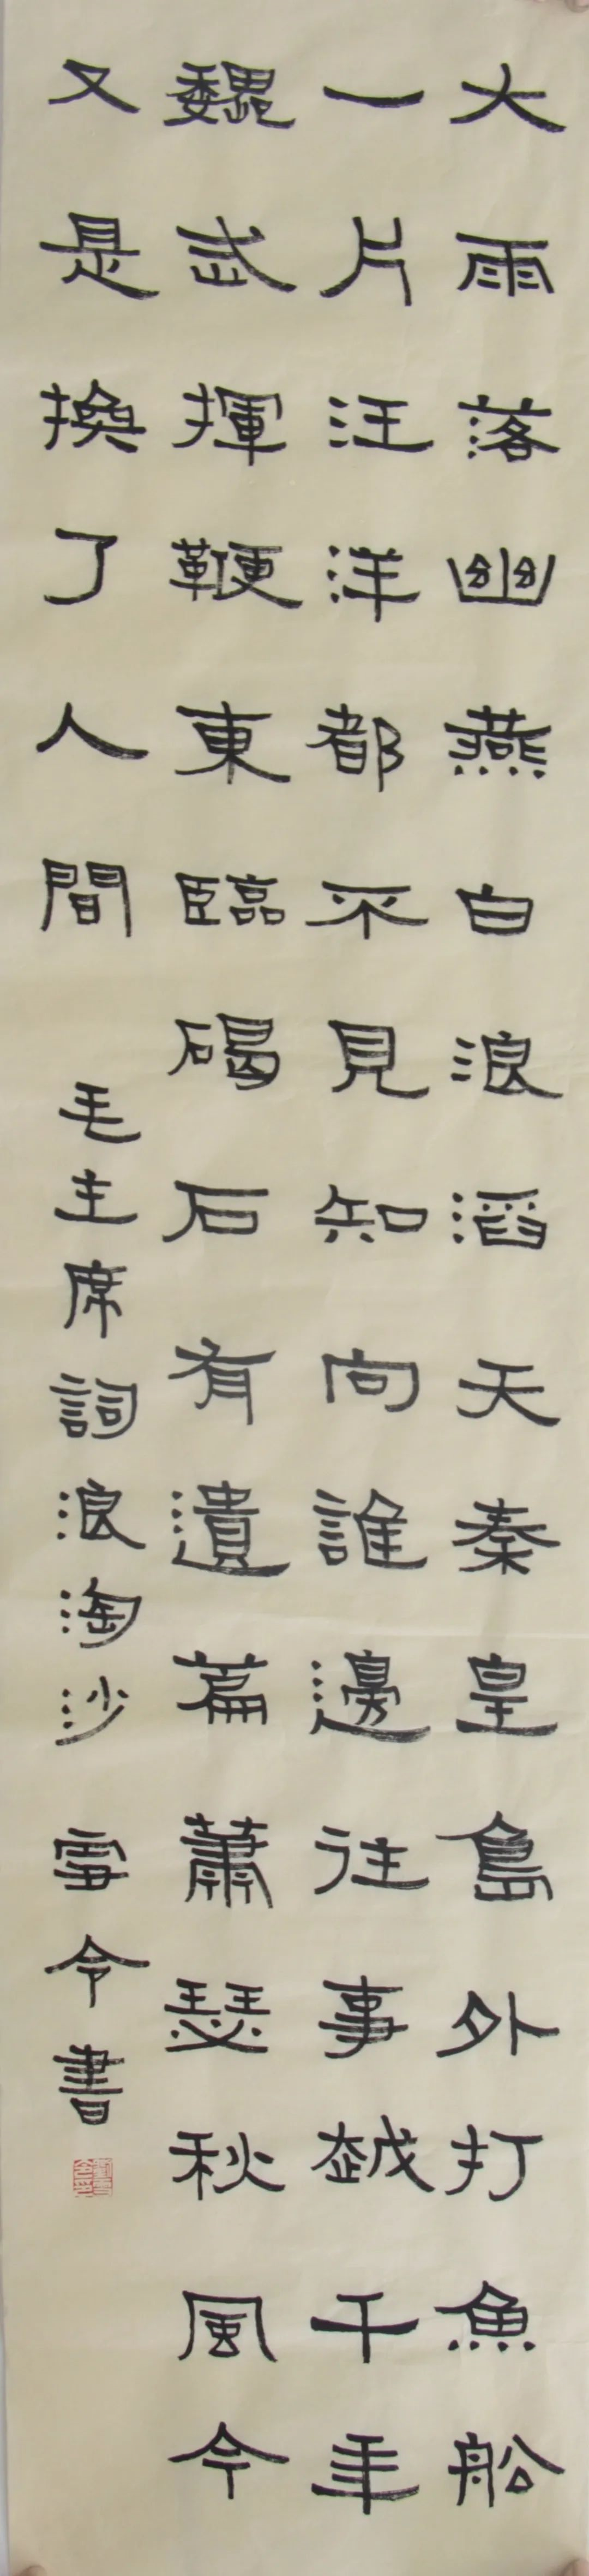 大雨落幽燕白浪滔天秦皇島外打魚船
一片汪洋都不見知向誰邊往事越千年
魏武揮鞭東臨碣石有遺篇蕭瑟秋風今
又是換了人間 毛主席詞浪淘沙 雪令書